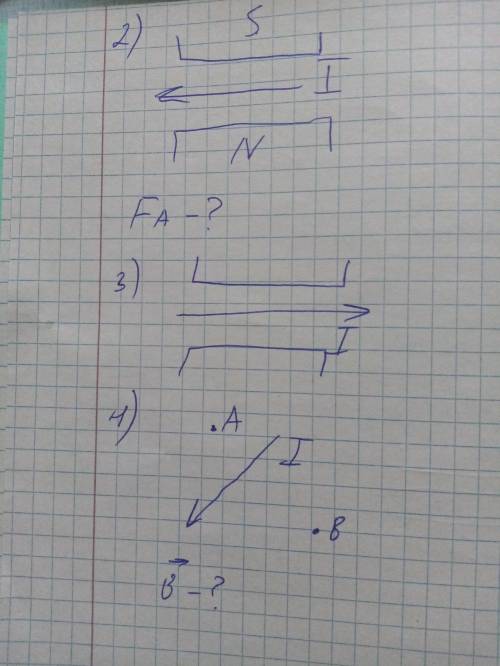 2)
S
I
N
F_A - ?
3)
I
4)
.A
I
.B
B⃗ - ?